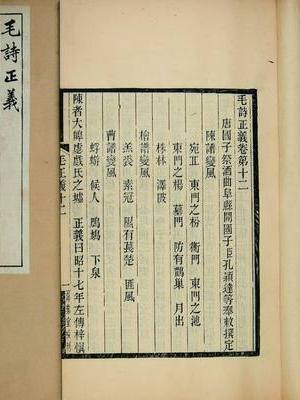 毛詩正義
毛詩正義卷第十二
唐國子祭酒曲阜縣開國子臣孔穎達等奉敕撰定
陳譜變風
宛丘 東門之枌 衡門 東門之池
東門之楊 墓門 防有鵲巢 月出
株林 澤陂
檜譜變風
羔裘 素冠 隰有萇楚 匪風
曹譜變風
蜉蝣 候人 鳲鳩 下泉
陳者大皞虙戲氏之墟 正義曰昭十七年左傳梓愼
毛正義十二
一